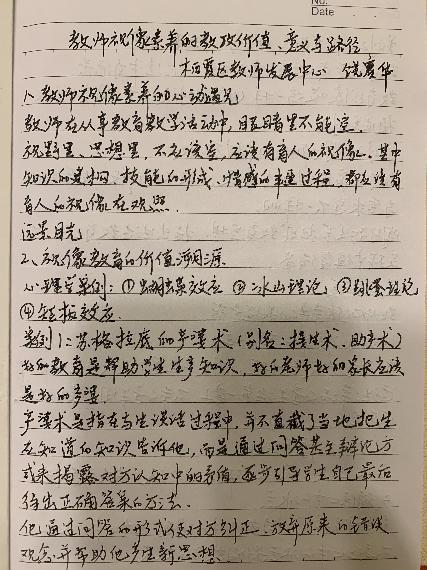 No.
Date
教师视像素养的教政价值、意义与路径
栖霞区教师发展中心 钱夏华
1、教师视像素养的心动遇见
教师在从事教育教学活动中，目里不能空，
视野里、思想里，不应该空，应该有育人的视像。其中
知识的建构，技能的形成、情感的丰盈过程，都应该有
育人的视像在观照。
远景目光
2、视像教育的价值溯源
心理学案例：①蝴蝶效应 ②冰山理论 ③跳蚤理论
④短板效应.
案例1：苏格拉底的产婆术（别名：接生术、助产术）
好的教育是帮助学生生产知识，好的老师好的家长应该
是好的产婆.
产婆术是指在与生谈话过程中，并不直截了当地把生
应知道的知识告诉他，而是通过问答甚至辩论方
式来揭露对方认知中的矛盾，逐步引导学生自己最后
得出正确答案的方法.
他通过问答的形式使对方纠正、放弃原来的错误
观念并帮助他产生新思想.